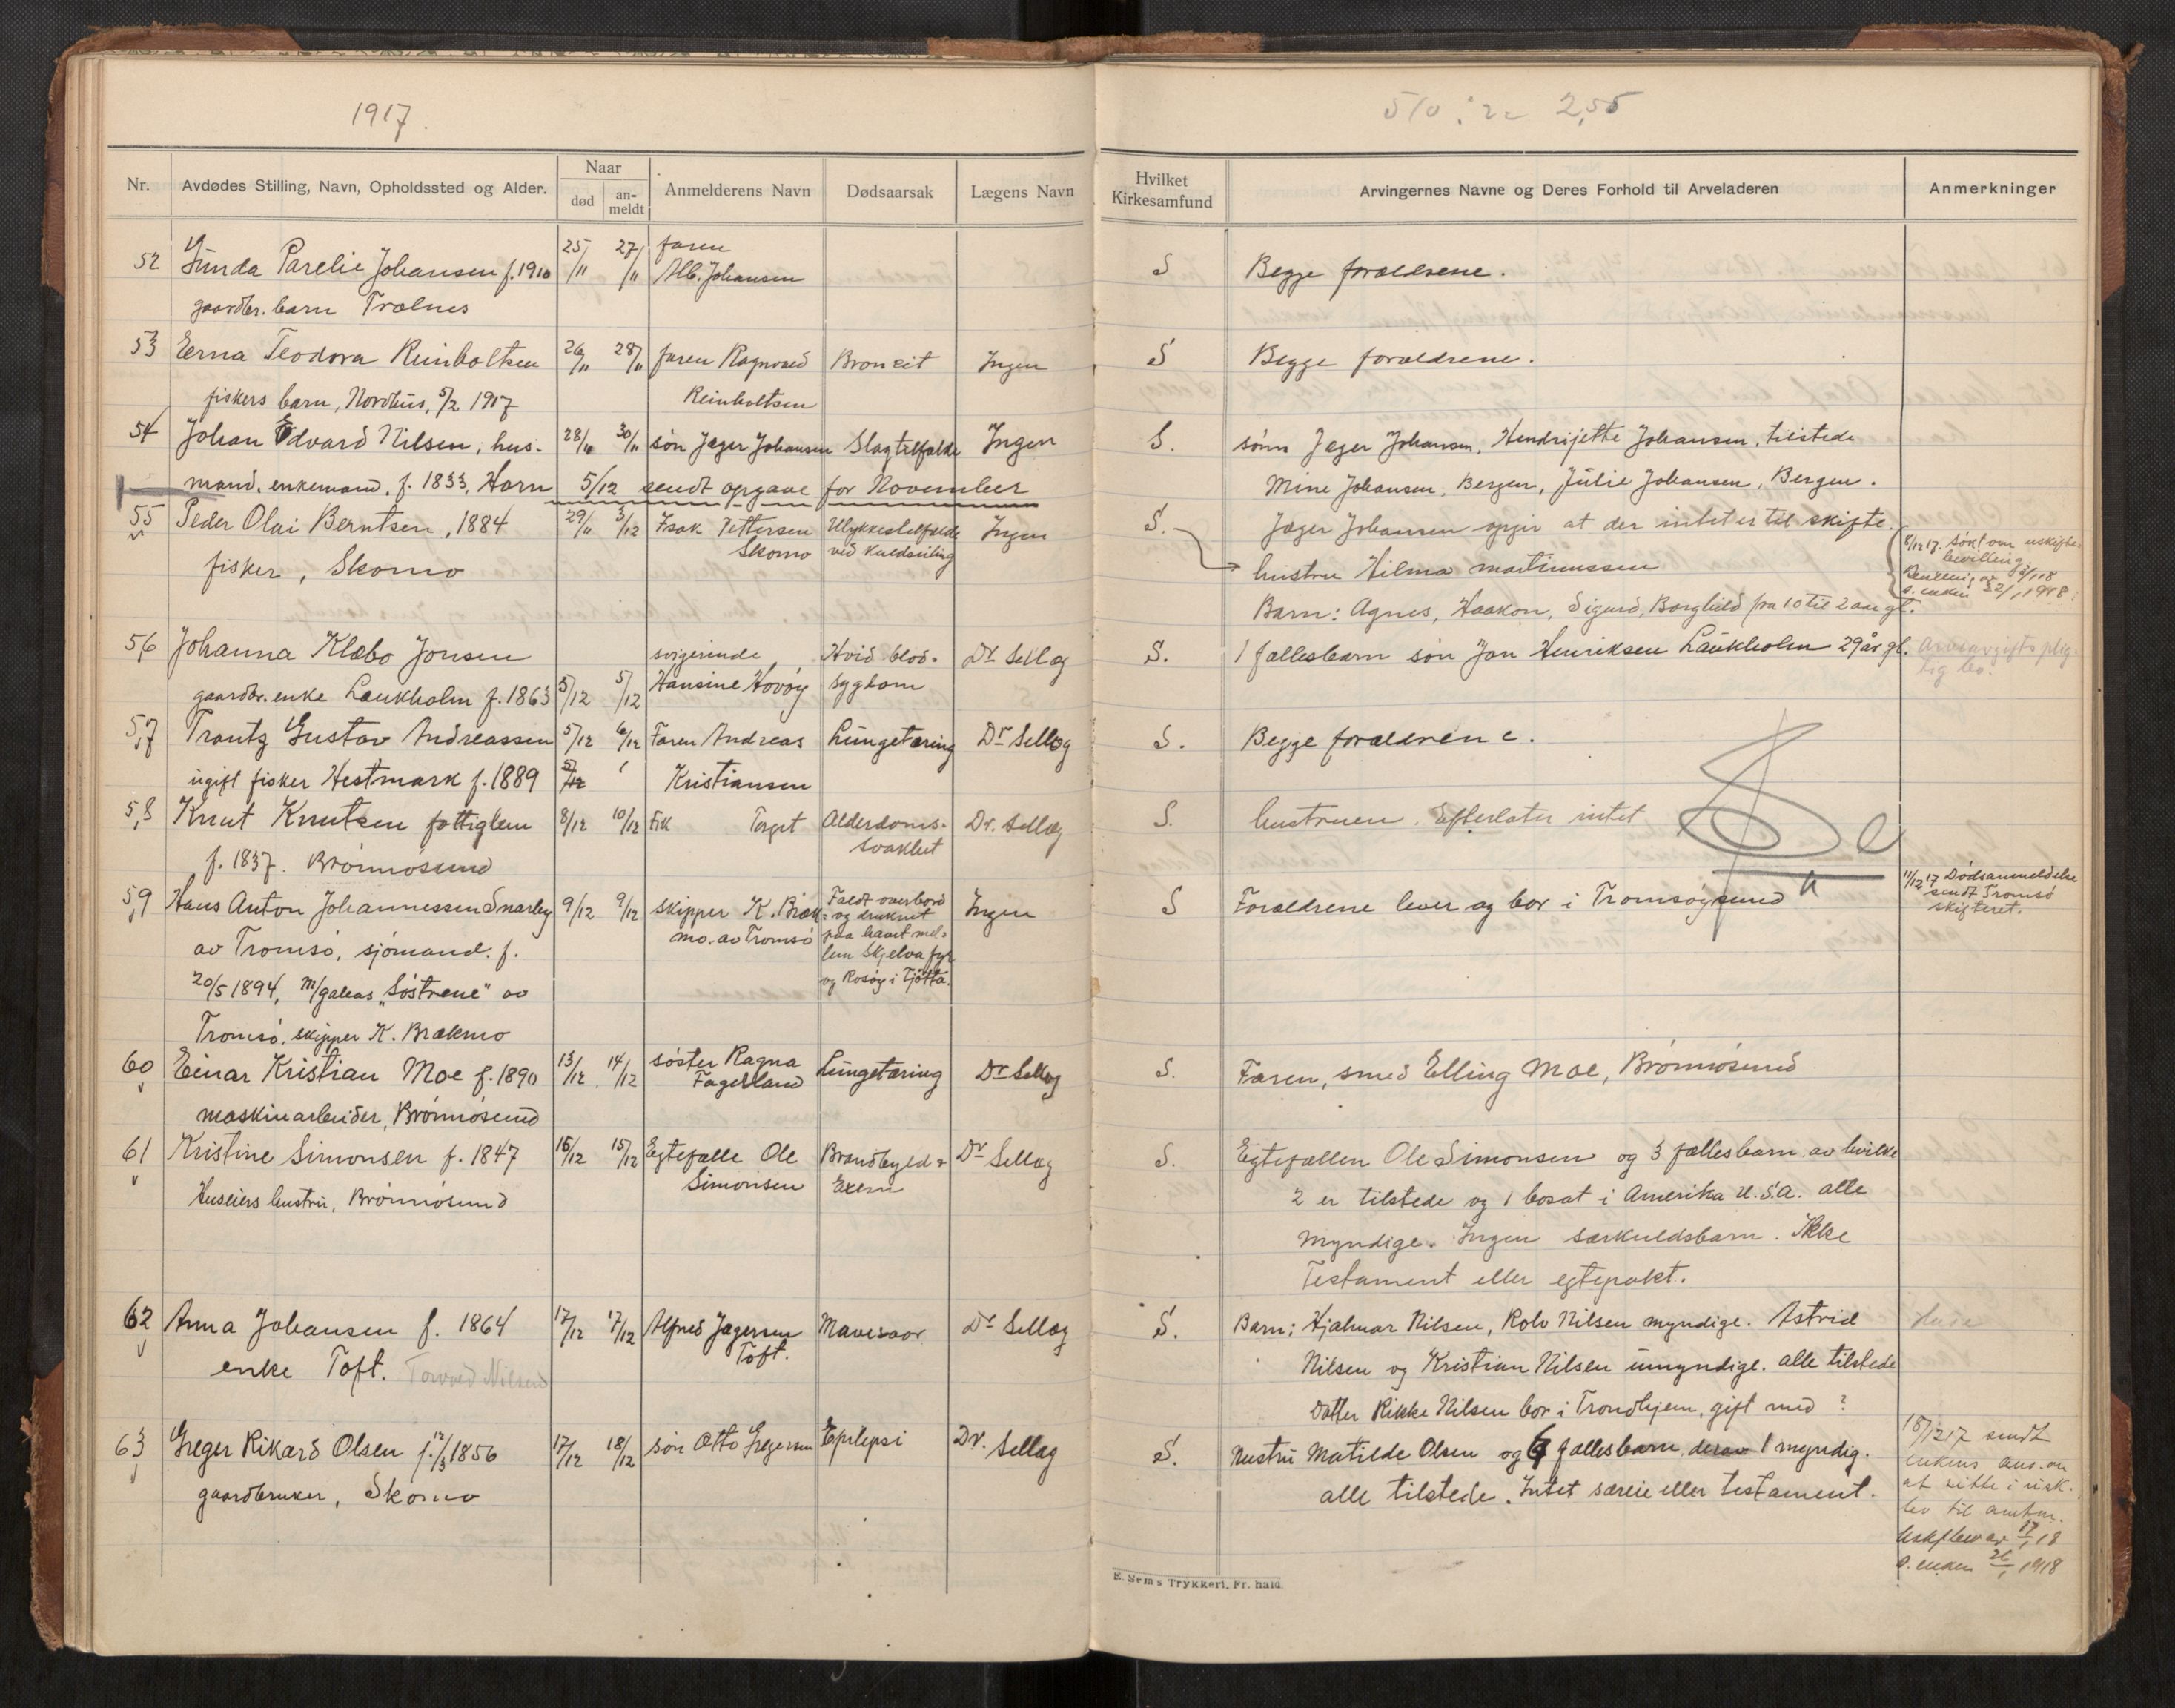 1917.
Nr. Avdødes Stilling, Navn, Opholdssted og Alder. Naar død an-meldt Anmelderens Navn Dødsaarsak Lægens Navn
52 Gunda Parelie Johansen f. 1910 25/11 27/11 faren Alb. Johansen
gaardbr. barn Trælnes
53 Erna Teodora Reinholtsen 26/11 28/11 faren Ragnvald Bronkit Ingen
fiskers barn, Nordhus, 5/2 1917 Reinholtsen
54 Johan Edvard Nilsen, hus- 28/11 30/11 søn Jæger Johansen Slagtilfælde Ingen
mand, enkemand, f. 1833, Horn 5/12 sendt opgave for November
55 Peder Olai Berntsen, 1884 29/11 3/12 Isak Pettersen Ulykkestilfælde Ingen
fisker, Skomo Skomo ved Kuldseiling
56 Johanna Klæbo Jonsen svigerinde Hvid blod- Dr Sellæg
gaardbr. enke Laukholm f. 1863 5/12 5/12 Hansine Hovøy sygdom
57 Trantz Gustav Andreassen 5/12 6/12 Faren Andreas Lungetæring Dr Sellæg
ugift fisker Hestmark f. 1889 5/12 Kristiansen
58 Knut Knutsen fattiglem 8/12 10/12 Fik Torget Alderdoms- Dr. Sellæg
f. 1837. Brønnøsund svakhet
59 Hans Anton Johannessen Snarby 9/12 9/12 skipper K. Bræk- Faldt overbord Ingen
av Tromsø, sjømand. f. mo. av Tromsø og druknet paa havet mel-
20/5 1894, m/galeas "Søstrene" av lem Skjelva fyr og Rosøy i Tjøtta.
Tromsø, skipper K. Brækmo
60 Einar Kristian Moe f. 1890 13/12 14/12 søster Ragna Lungetæring Dr Sellæg
maskinarbeider, Brønnøsund Fagerland
61 Kristine Simonsen f. 1847 15/12 15/12 Egtefælle Ole Brandbyld & Dr Sellæg
Huseiers hustru, Brønnøsund Simonsen
62 Anna Johansen f. 1864 17/12 17/12 Alfred Jægersen Mavesaar Dr Sellæg
enke Toft. Torvald Nilsen Toft.
63 Greger Rikard Olsen f. 12/3 1856 17/12 18/12 søn Otto Gregersen Epilepsi Dr. Sellæg
gaardbruker, Skomo
510 : 2 = 2,55
Hvilket Kirkesamfund Arvingernes Navne og Deres Forhold til Arveladeren Anmerkninger
S Begge forældrene.
S Begge forældrene.
S. sønn Jæger Johansen, Hendrijette Johansen, tilstede
Mine Johansen, Bergen, Julie Johansen, Bergen.
S. Jæger Johansen opgir at der intet er til skifte.
hustru Hilma Martinussen 8/12 17. søkt om uskifte-
bevilling
Bevilling av
s. enken 22/1 1918
Barn: Agnes, Haakon, Sigurd, Borghild fra 10 til 2 aar gl.
S. 1 fællesbarn søn Jan Henriksen Laukholm 29 år gl. Arveavgiftsplig-
tig bo.
S. Begge forældrene.
S. hustruen. Efterlater intet
S Forældrene lever og bor i Tromsøysund 11/12 17 Dødsanmeldelse
sendt Tromsø
skifteret.
S. Faren, smed Elling Moe, Brønnøsund
S. Egtefællen Ole Simonsen og 3 fællesbarn av hvilke
2 er tilstede og 1 bosat i Amerika U.S.A. alle
myndige. Ingen særkuldsbarn. Ikke
Testament eller egtepakt.
S. Barn: Hjalmar Nilsen, Rolv Nilsen myndige. Astrid
Nilsen og Kristian Nilsen umyndige. alle tilstede
Datter Rikke Nilsen bor i Trondhjem, gift med ?
S. Hustru Matilde Olsen og 6 fællesbarn, derav 1 myndig.
alle tilstede. Intet særeie eller testament.
18/12 17 sendt
enkens ans. om
at sitte i uskift.
bo til amtm.
Uskiftebev av 17/1 18
s. enken 26/1 1918
E. Sem's Trykkeri, Fr.hald